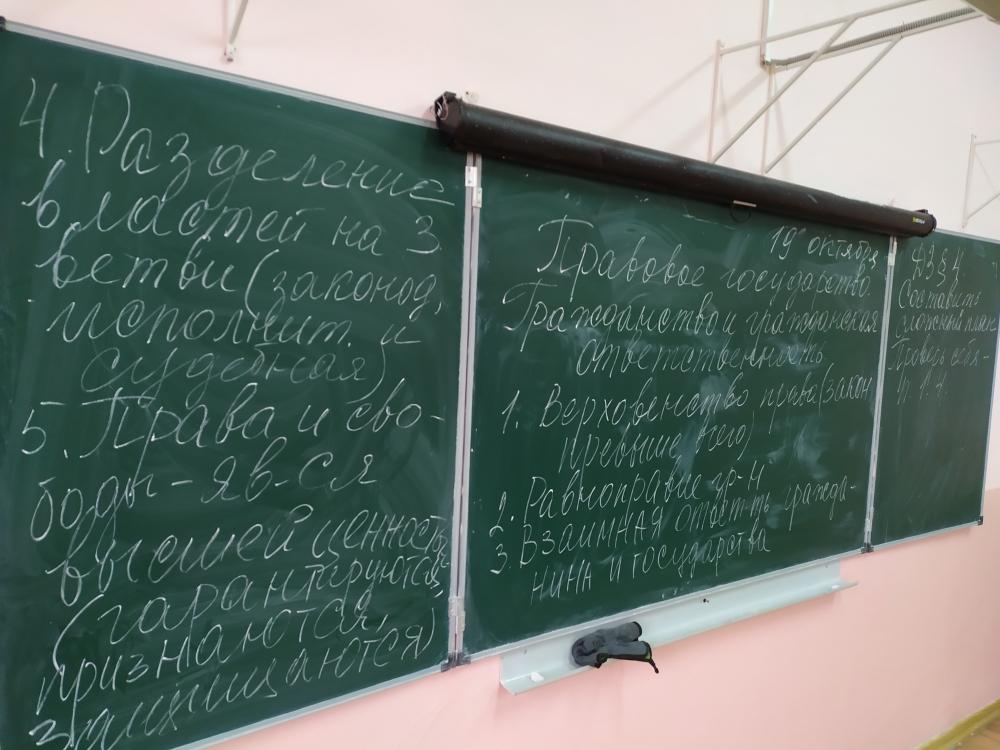 19 октября
Правовое государство.
Гражданство и гражданская
ответственность
1. Верховенство права (закон
превыше всего)
2. Равноправие гр-н
3. Взаимная ответ-ть гражда-
нина и государства
4. Разделение
властей на 3
ветви (законод,
исполнит. и
судебная)
5. Права и сво-
боды - яв-ся
высшей ценность
(гарантируются,
признаются,
защищаются)
ДЗ § 4
Составить
сложный план
Проверь себя -